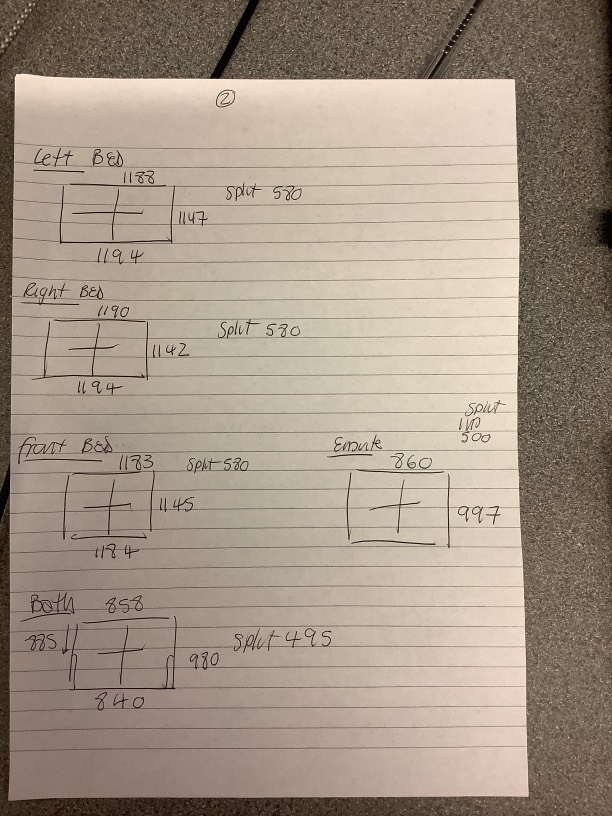 2
Left BED
1188
Split 580
1147
1194
Right BED
1190
Split 580
1142
1194
Split
500
Front BED
1183
Split 580
1145
1184
Ensuite
860
997
Bath
858
885
980
Split 495
840